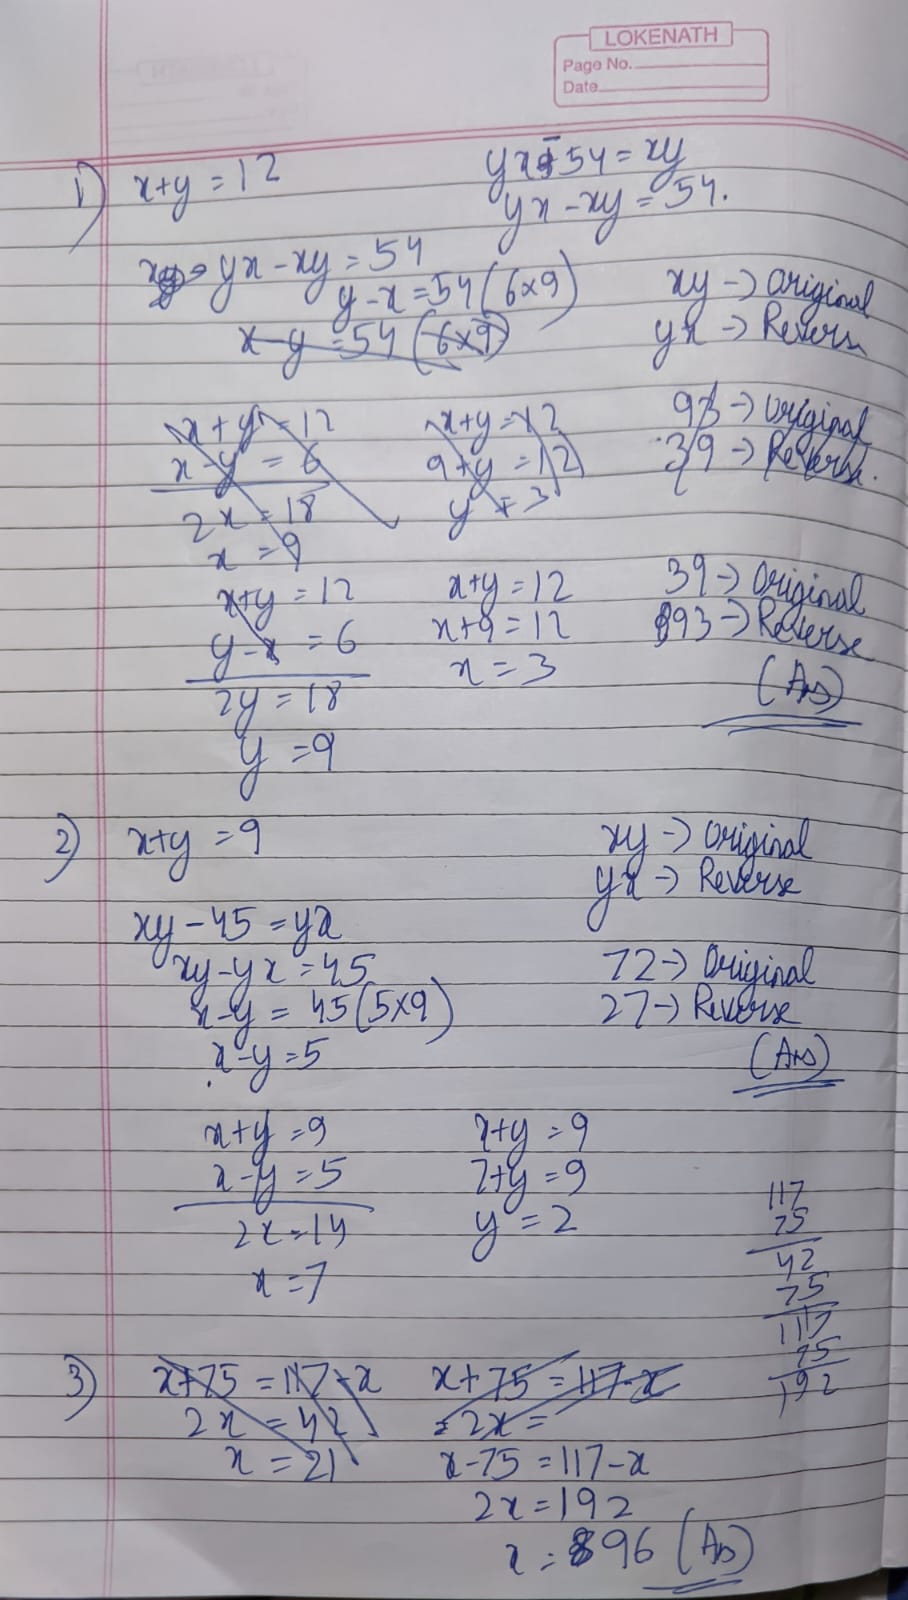 LOKENATH
Page No.
Date
1) x+y = 12
yx - 54 = xy
yx - xy = 54.
yx - xy = 54
y - x = 54 (6x9)
x - y = 54 (6x9)
xy → Original
yx → Reverse
x + y = 12
x - y = 6
2x = 18
x = 9
x+y = 12
9+y = 12
y = 3
93 → Original
39 → Reverse.
x+y = 12
y - x = 6
2y = 18
y = 9
x+y = 12
x+9 = 12
x = 3
39 → Original
93 → Reverse
(Ans)
2) x+y = 9
xy → Original
yx → Reverse
xy - 45 = yx
xy - yx = 45
x - y = 45 (5x9)
x - y = 5
72 → Original
27 → Reverse
(Ans)
x+y = 9
x - y = 5
2x = 14
x = 7
x+y = 9
7+y = 9
y = 2
117
75
42
75
117
75
192
3) x+75 = 117 - x
2x = 42
x = 21
x + 75 = 117 - x
2x =
x - 75 = 117 - x
2x = 192
x = 96 (Ans)